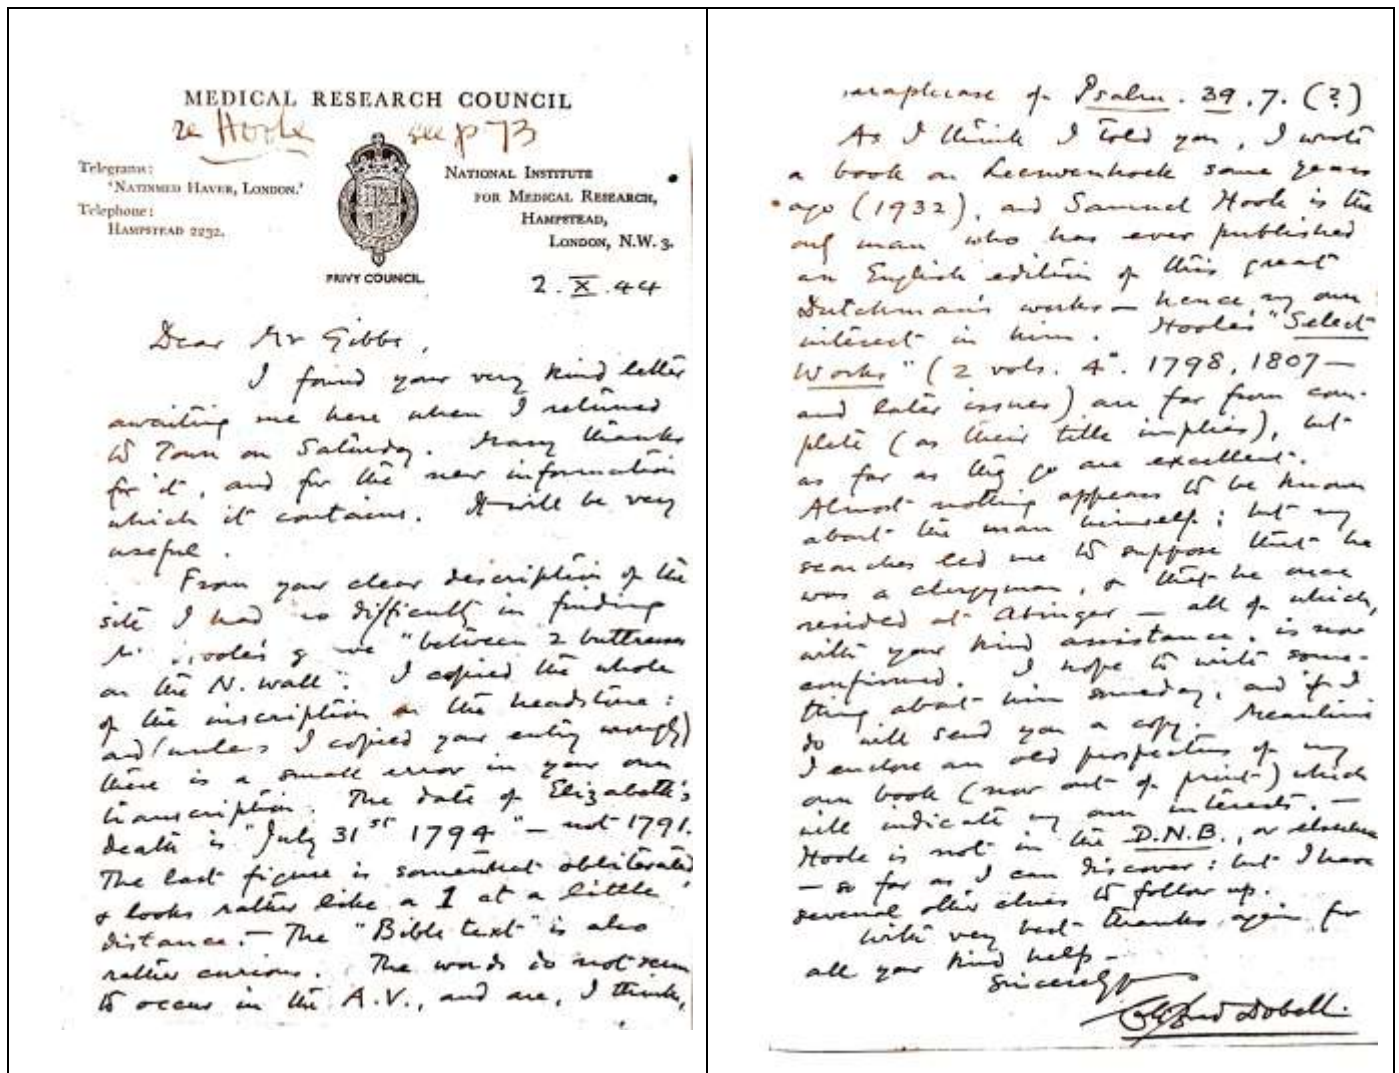 MEDICAL RESEARCH COUNCIL
re Hoole see p 73
Telegrams:
'NATINMED HAVER, LONDON.'
Telephone:
HAMPSTEAD 2232.
NATIONAL INSTITUTE
FOR MEDICAL RESEARCH,
HAMPSTEAD,
LONDON, N.W. 3.
PRIVY COUNCIL
2.X.44
Dear Mr Gibbs,
I found your very kind letter
awaiting me here when I returned
to Town on Saturday. Many thanks
for it, and for the new information
which it contains. It will be very
useful.
From your clear description of the
site I had no difficulty in finding
"between 2 buttresses
on the N. wall". I copied the whole
of the inscription on the headstone:
and (unless I copied your entry wrongly)
there is a small error in your own
transcription. The date of Elizabeth's
death is "July 31st 1794" — not 1791.
The last figure is somewhat obliterated,
& looks rather like a 1 at a little
distance. — The "Bible text" is also
rather curious. The words do not seem
to occur in the A.V., and are, I think,
paraphrase of Psalm. 39.7. (?)
As I think I told you, I wrote
a book on Leeuwenhoek some years
ago (1932), and Samuel Hoole is the
only man who has ever published
an English edition of this great
Dutchman's works — hence my own
interest in him. Hoole's "Select
Works" (2 vols. 4°. 1798, 1807 —
and later issues) are far from com-
plete (as their title implies), but
as far as they go are excellent.
Almost nothing appears to be known
about the man himself; but my
searches led me to suppose that he
was a clergyman, & that he once
resided at Abinger — all of which,
with your kind assistance, is now
confirmed. I hope to write some-
thing about him someday, and if I
do will send you a copy. Meantime
I enclose an old prospectus of my
own book (now out of print) which
will indicate my own interests. —
Hoole is not in the D.N.B., or elsewhere
— so far as I can discover: but I have
several other clues to follow up.
With very best thanks again for
all your kind help —
Sincerely
Clifford Dobell.